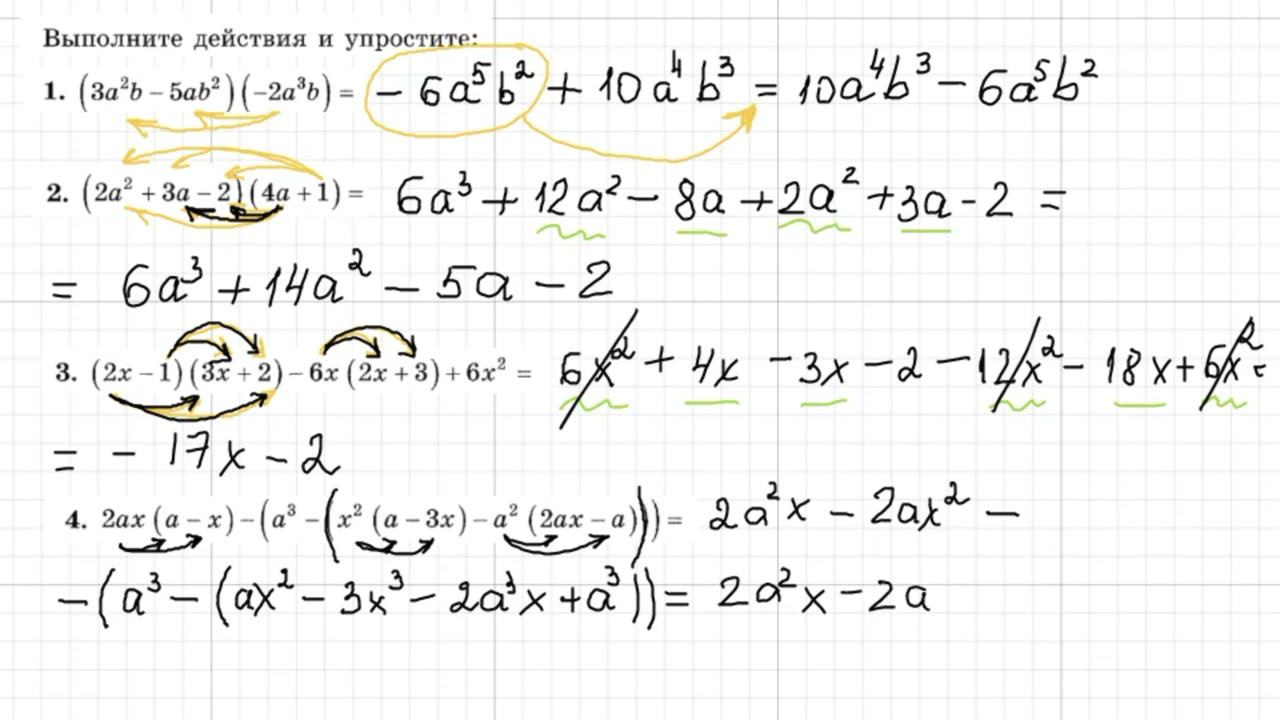 Выполните действия и упростите:
1. (3a²b − 5ab²)(−2a³b) = − 6a⁵b² + 10a⁴b³ = 10a⁴b³ − 6a⁵b²
2. (2a² + 3a − 2)(4a + 1) = 6a³ + 12a² − 8a + 2a² + 3a − 2 =
= 6a³ + 14a² − 5a − 2
3. (2x − 1)(3x + 2) − 6x (2x + 3) + 6x² = 6x² + 4x − 3x − 2 − 12x² − 18x + 6x² =
= − 17x − 2
4. 2ax (a − x) − (a³ − (x² (a − 3x) − a² (2ax − a))) = 2a²x − 2ax² −
− (a³ − (ax² − 3x³ − 2a³x + a³)) = 2a²x − 2a